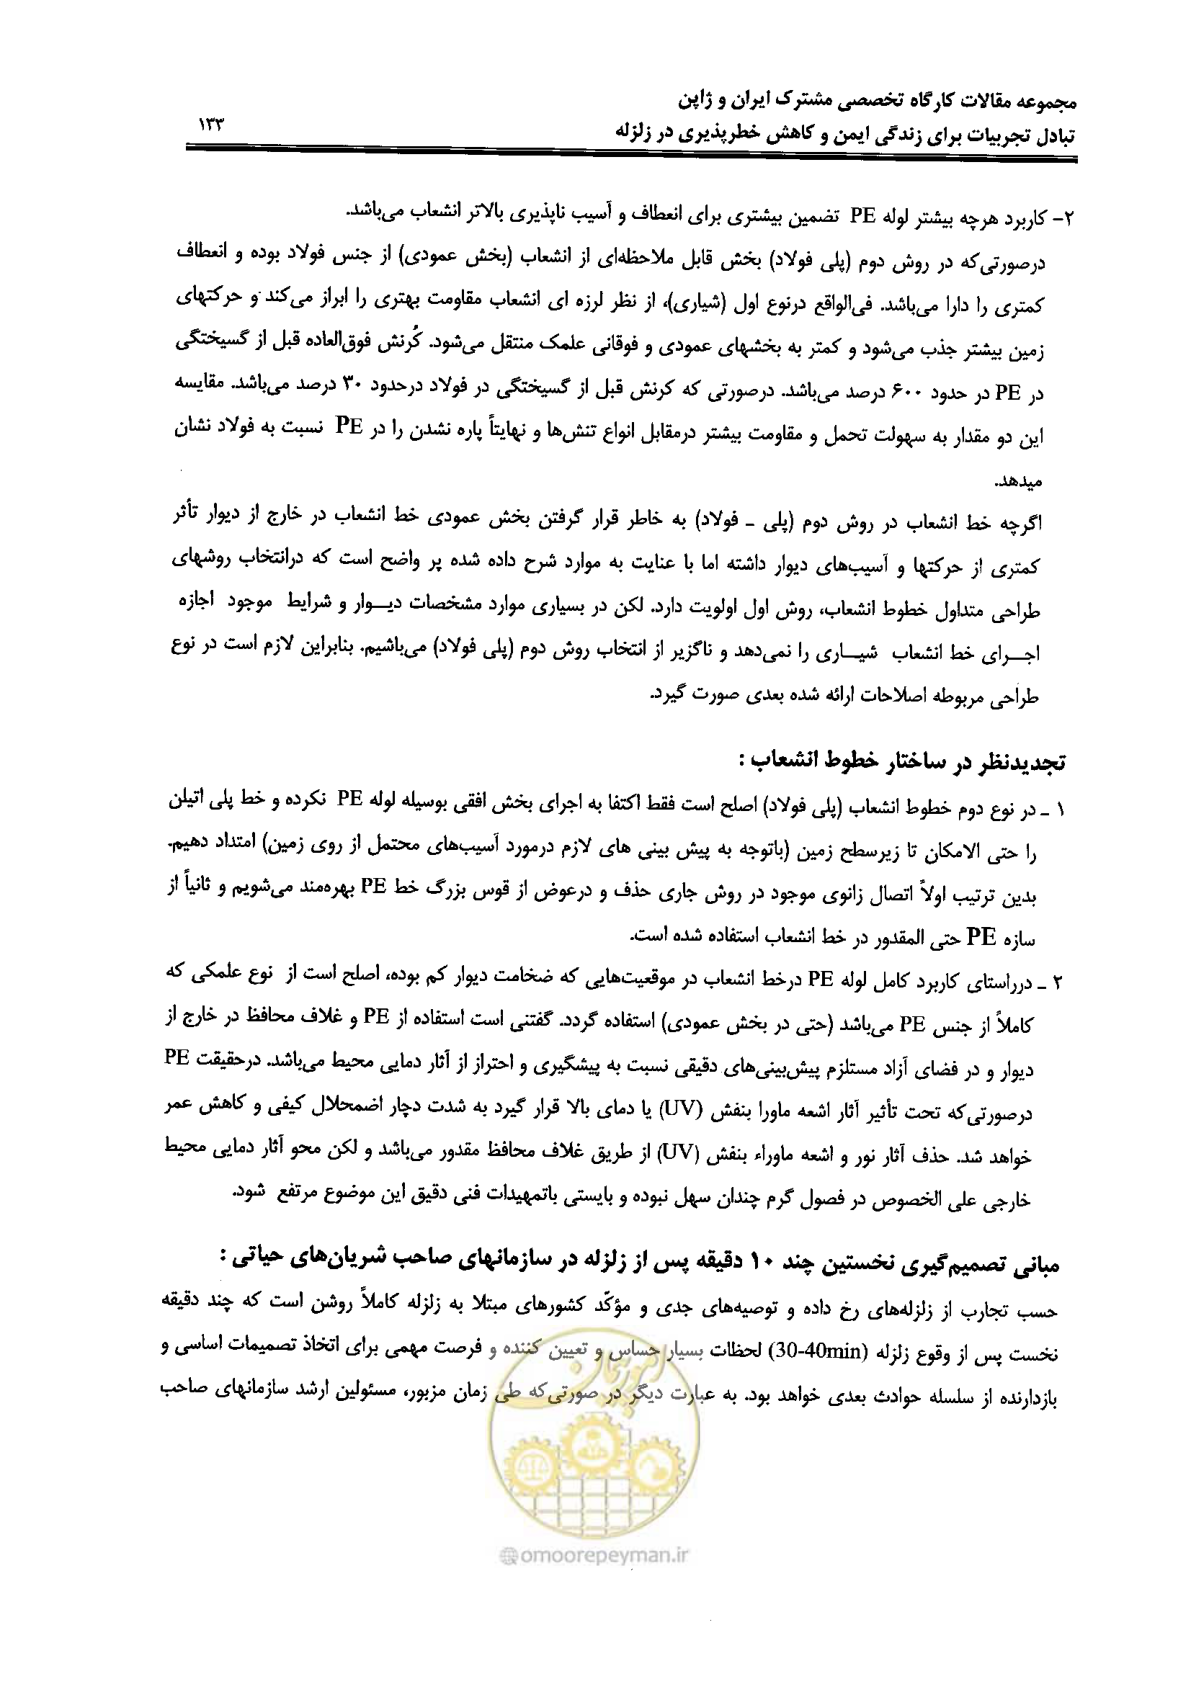 مجموعه مقالات کارگاه تخصصی مشترک ایران و ژاپن
تبادل تجربیات برای زندگی ایمن و کاهش خطرپذیری در زلزله
۱۳۳
۲- کاربرد هرچه بیشتر لوله PE تضمین بیشتری برای انعطاف و آسیب ناپذیری بالاتر انشعاب می‌باشد.
درصورتی‌که در روش دوم (پلی فولاد) بخش قابل ملاحظه‌ای از انشعاب (بخش عمودی) از جنس فولاد بوده و انعطاف
کمتری را دارا می‌باشد. فی‌الواقع درنوع اول (شیاری)، از نظر لرزه ای انشعاب مقاومت بهتری را ابراز می‌کند و حرکتهای
زمین بیشتر جذب می‌شود و کمتر به بخشهای عمودی و فوقانی علمک منتقل می‌شود. کُرنش فوق‌العاده قبل از گسیختگی
در PE در حدود ۶۰۰ درصد می‌باشد. درصورتی که کرنش قبل از گسیختگی در فولاد درحدود ۳۰ درصد می‌باشد. مقایسه
این دو مقدار به سهولت تحمل و مقاومت بیشتر درمقابل انواع تنش‌ها و نهایتاً پاره نشدن را در PE نسبت به فولاد نشان
میدهد.
اگرچه خط انشعاب در روش دوم (پلی ـ فولاد) به خاطر قرار گرفتن بخش عمودی خط انشعاب در خارج از دیوار تأثر
کمتری از حرکتها و آسیب‌های دیوار داشته اما با عنایت به موارد شرح داده شده پر واضح است که درانتخاب روشهای
طراحی متداول خطوط انشعاب، روش اول اولویت دارد. لکن در بسیاری موارد مشخصات دیـوار و شرایط موجود اجازه
اجـرای خط انشعاب شیـاری را نمی‌دهد و ناگزیر از انتخاب روش دوم (پلی فولاد) می‌باشیم. بنابراین لازم است در نوع
طراحی مربوطه اصلاحات ارائه شده بعدی صورت گیرد.
تجدیدنظر در ساختار خطوط انشعاب :
۱ ـ در نوع دوم خطوط انشعاب (پلی فولاد) اصلح است فقط اکتفا به اجرای بخش افقی بوسیله لوله PE نکرده و خط پلی اتیلن
را حتی الامکان تا زیرسطح زمین (باتوجه به پیش بینی های لازم درمورد آسیب‌های محتمل از روی زمین) امتداد دهیم.
بدین ترتیب اولاً اتصال زانوی موجود در روش جاری حذف و درعوض از قوس بزرگ خط PE بهره‌مند می‌شویم و ثانیاً از
سازه PE حتی المقدور در خط انشعاب استفاده شده است.
۲ ـ درراستای کاربرد کامل لوله PE درخط انشعاب در موقعیت‌هایی که ضخامت دیوار کم بوده، اصلح است از نوع علمکی که
کاملاً از جنس PE می‌باشد (حتی در بخش عمودی) استفاده گردد. گفتنی است استفاده از PE و غلاف محافظ در خارج از
دیوار و در فضای آزاد مستلزم پیش‌بینی‌های دقیقی نسبت به پیشگیری و احتراز از آثار دمایی محیط می‌باشد. درحقیقت PE
درصورتی‌که تحت تأثیر آثار اشعه ماورا بنفش (UV) یا دمای بالا قرار گیرد به شدت دچار اضمحلال کیفی و کاهش عمر
خواهد شد. حذف آثار نور و اشعه ماوراء بنفش (UV) از طریق غلاف محافظ مقدور می‌باشد و لکن محو آثار دمایی محیط
خارجی علی الخصوص در فصول گرم چندان سهل نبوده و بایستی باتمهیدات فنی دقیق این موضوع مرتفع شود.
مبانی تصمیم‌گیری نخستین چند ۱۰ دقیقه پس از زلزله در سازمانهای صاحب شریان‌های حیاتی :
حسب تجارب از زلزله‌های رخ داده و توصیه‌های جدی و مؤکّد کشورهای مبتلا به زلزله کاملاً روشن است که چند دقیقه
نخست پس از وقوع زلزله (30-40min) لحظات بسیار حساس و تعیین کننده و فرصت مهمی برای اتخاذ تصمیمات اساسی و
بازدارنده از سلسله حوادث بعدی خواهد بود. به عبارت دیگر در صورتی‌که طی زمان مزبور، مسئولین ارشد سازمانهای صاحب
امور پیمان
@omoorepeyman.ir